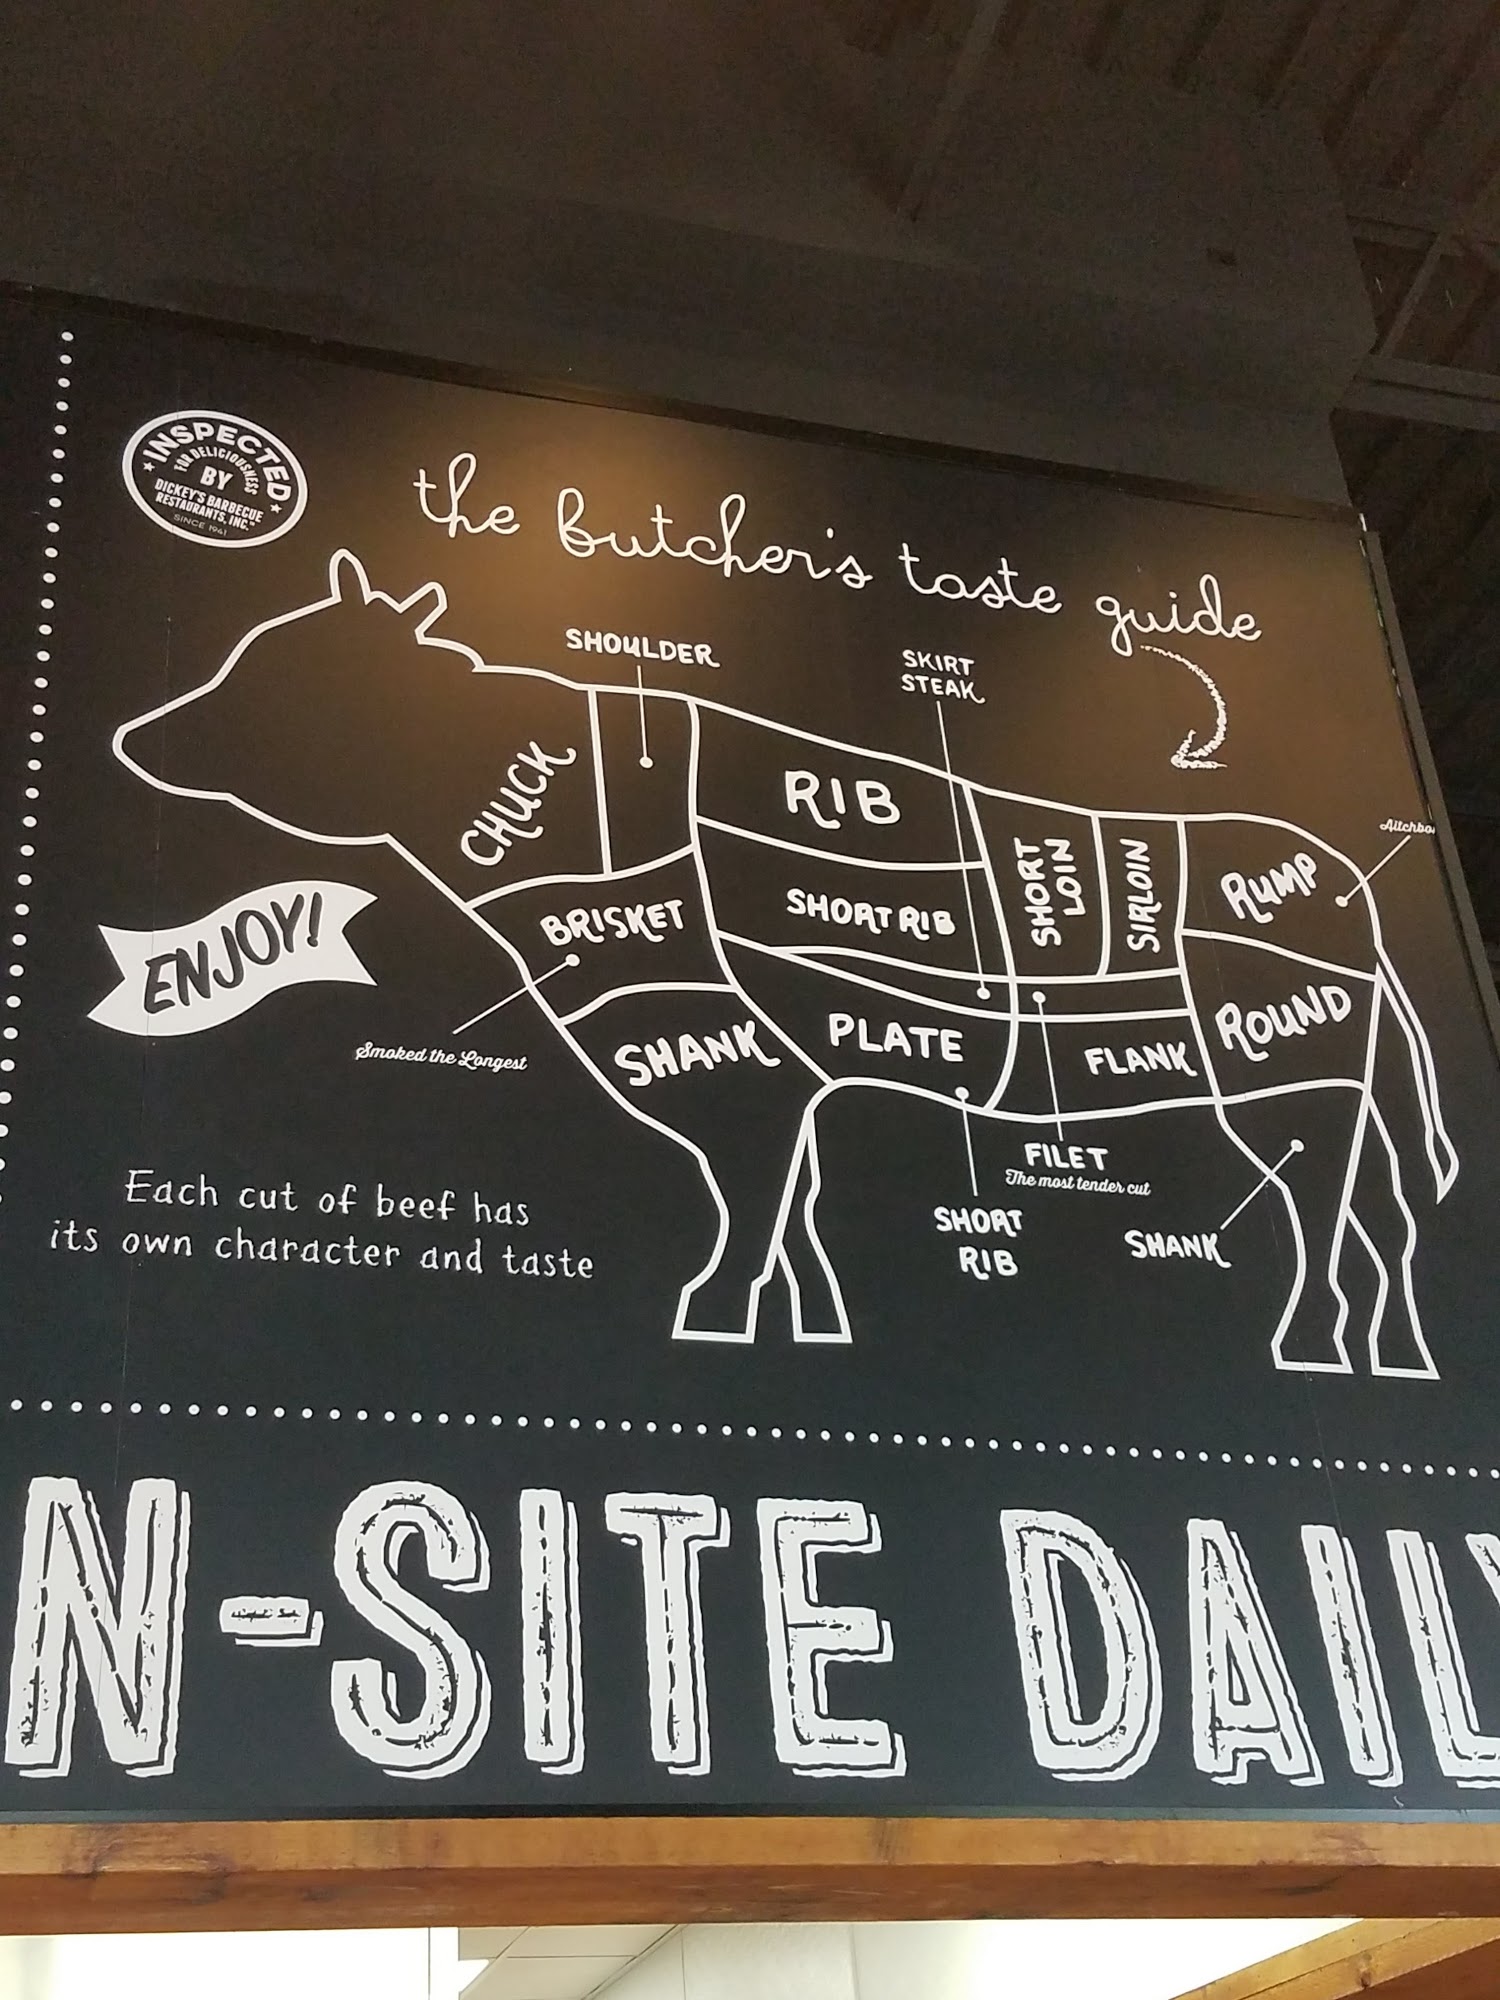 INSPECTED
FOR DELICIOUSNESS
BY
DICKEY'S BARBECUE
RESTAURANTS, INC.™
SINCE 1941
the butcher's taste guide
SHOULDER
SKIRT
STEAK
CHUCK
RIB
SHORT
LOIN
SIRLOIN
RUMP
Aitchbo
BRISKET
SHORT RIB
ENJOY!
Smoked the Longest
SHANK
PLATE
FLANK
ROUND
FILET
The most tender cut
SHORT
RIB
SHANK
Each cut of beef has
its own character and taste
N-SITE DAILY